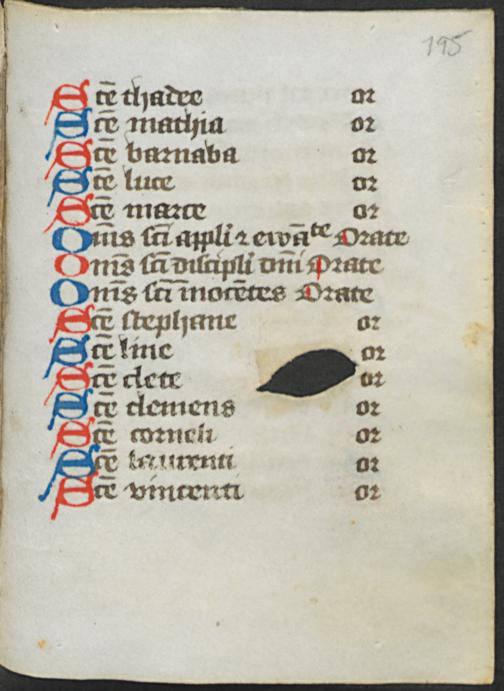 195
Scē thadee or
Scē mathia or
Scē barnaba or
Scē luce or
Scē marce or
Om̄s sc̄i appl̄i ⁊ ewāᵗᵉ Orate
Om̄s sc̄i discipl̄i dn̄i Orate
Om̄s sc̄i īnocētes Orate
Scē stephane or
Scē line or
Scē clete or
Scē clemens or
Scē corneli or
Scē laurenti or
Scē vincenti or